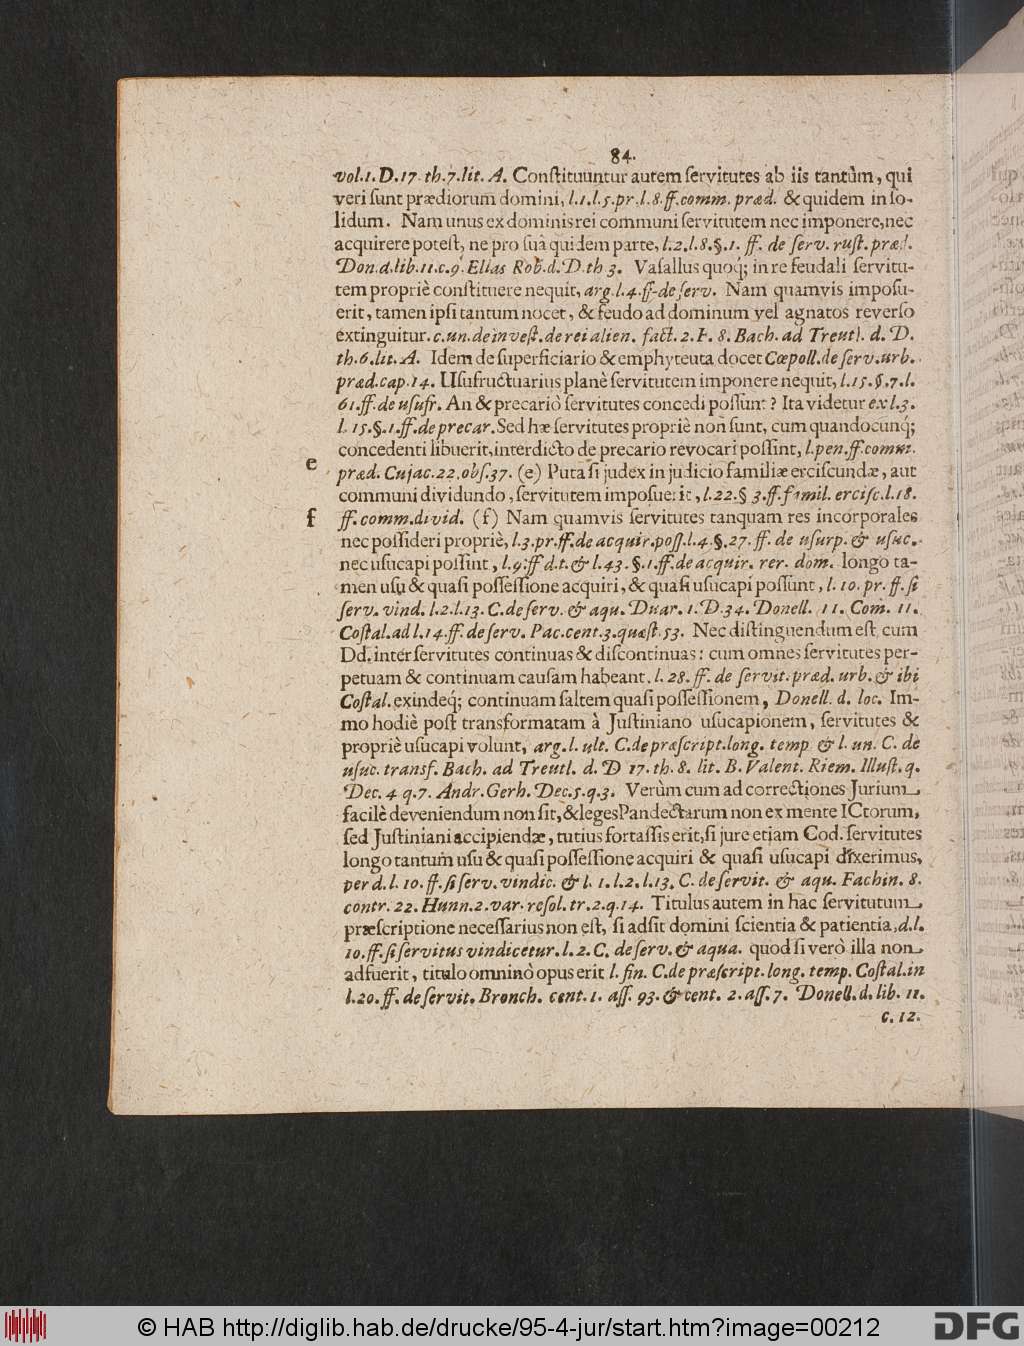 84.
vol.1.D.17.th.7.lit.A. Constituuntur autem servitutes ab iis tantùm, qui
veri sunt prædiorum domini, l.1.l.5.pr.l.8.ff.comm.præd. & quidem in so-
lidum. Nam unus ex dominis rei communi servitutem nec imponere, nec
acquirere potest, ne pro suâ quidem parte, l.2.l.8.§.1. ff. de serv. rust. præd.
Don.d.lib.11.c.9. Elias Rob.d.D.th 3. Vasallus quoq́; in re feudali servitu-
tem propriè constituere nequit, arg.l.4.ff-de serv. Nam quamvis imposu-
erit, tamen ipsi tantum nocet, & feudo ad dominum vel agnatos reverso
extinguitur. c.un.de invest.de rei alien. fact. 2.F. 8. Bach. ad Treutl. d. D.
th.6.lit.A. Idem de superficiario & emphyteuta docet Cœpoll.de serv.urb.
præd.cap.14. Usufructuarius planè servitutem imponere nequit, l.15.§.7.l.
61.ff.de usufr. An & precariò servitutes concedi possunt? Ita videtur ex l.3.
l. 15.§.1.ff.de precar. Sed hæ servitutes propriè non sunt, cum quandocunq́;
concedenti libuerit, interdicto de precario revocari possint, l.pen.ff.comm.
e præd. Cujac.22.obs.37. (e) Puta si judex in judicio familiæ erciscundæ, aut
communi dividundo, servitutem imposuerit, l.22.§ 3.ff.famil. ercisc.l.18.
f ff.comm.divid. (f) Nam quamvis servitutes tanquam res incorporales
nec possideri propriè, l.3.pr.ff.de acquir.poss.l.4.§.27. ff. de usurp. & usuc.
nec usucapi possint, l.9.ff d.t.& l.43.§.1.ff.de acquir. rer. dom. longo ta-
men usu & quasi possessione acquiri, & quasi usucapi possunt, l. 10. pr. ff. si
serv. vind. l.2.l.13. C.de serv. & aqu. Duar. 1. D.34. Donell. 11. Com. 11.
Costal.ad l.14.ff. de serv. Pac.cent.3.quæst.53. Nec distinguendum est cum
Dd. inter servitutes continuas & discontinuas: cum omnes servitutes per-
petuam & continuam causam habeant. l. 28. ff. de servit. præd. urb. & ibi
Costal. exindeq́; continuam saltem quasi possessionem, Donell. d. loc. Im-
mo hodiè post transformatam à Justiniano usucapionem, servitutes &
propriè usucapi volunt, arg. l. ult. C.de præscript.long. temp. & l. un. C. de
usuc. transf. Bach. ad Treutl. d. D 17. th. 8. lit. B. Valent. Riem. Illust. q.
Dec. 4 q.7. Andr. Gerh. Dec.5.q.3. Verùm cum ad correctiones Jurium
facilè deveniendum non sit, & leges Pandectarum non ex mente ICtorum,
sed Justiniani accipiendæ, tutius fortassis erit, si jure etiam Cod. servitutes
longo tantum usu & quasi possessione acquiri & quasi usucapi dixerimus,
per d. l. 10. ff. si serv. vindic. & l. 1. l.2. l.13. C. de servit. & aqu. Fachin. 8.
contr. 22. Hunn.2.var.resol.tr.2.q.14. Titulus autem in hac servitutum
præscriptione necessarius non est, si adsit domini scientia & patientia, d.l.
10.ff.si servitus vindicetur.l.2.C. de serv.& aqua. quod si verò illa non
adfuerit, titulo omninò opus erit l. fin. C.de præscript. long. temp. Costal.in
l.20. ff. de servit. Bronch. cent. 1. ass. 93. & cent. 2. ass. 7. Donell. d. lib. 11.
c. 12.
© HAB http://diglib.hab.de/drucke/95-4-jur/start.htm?image=00212
DFG